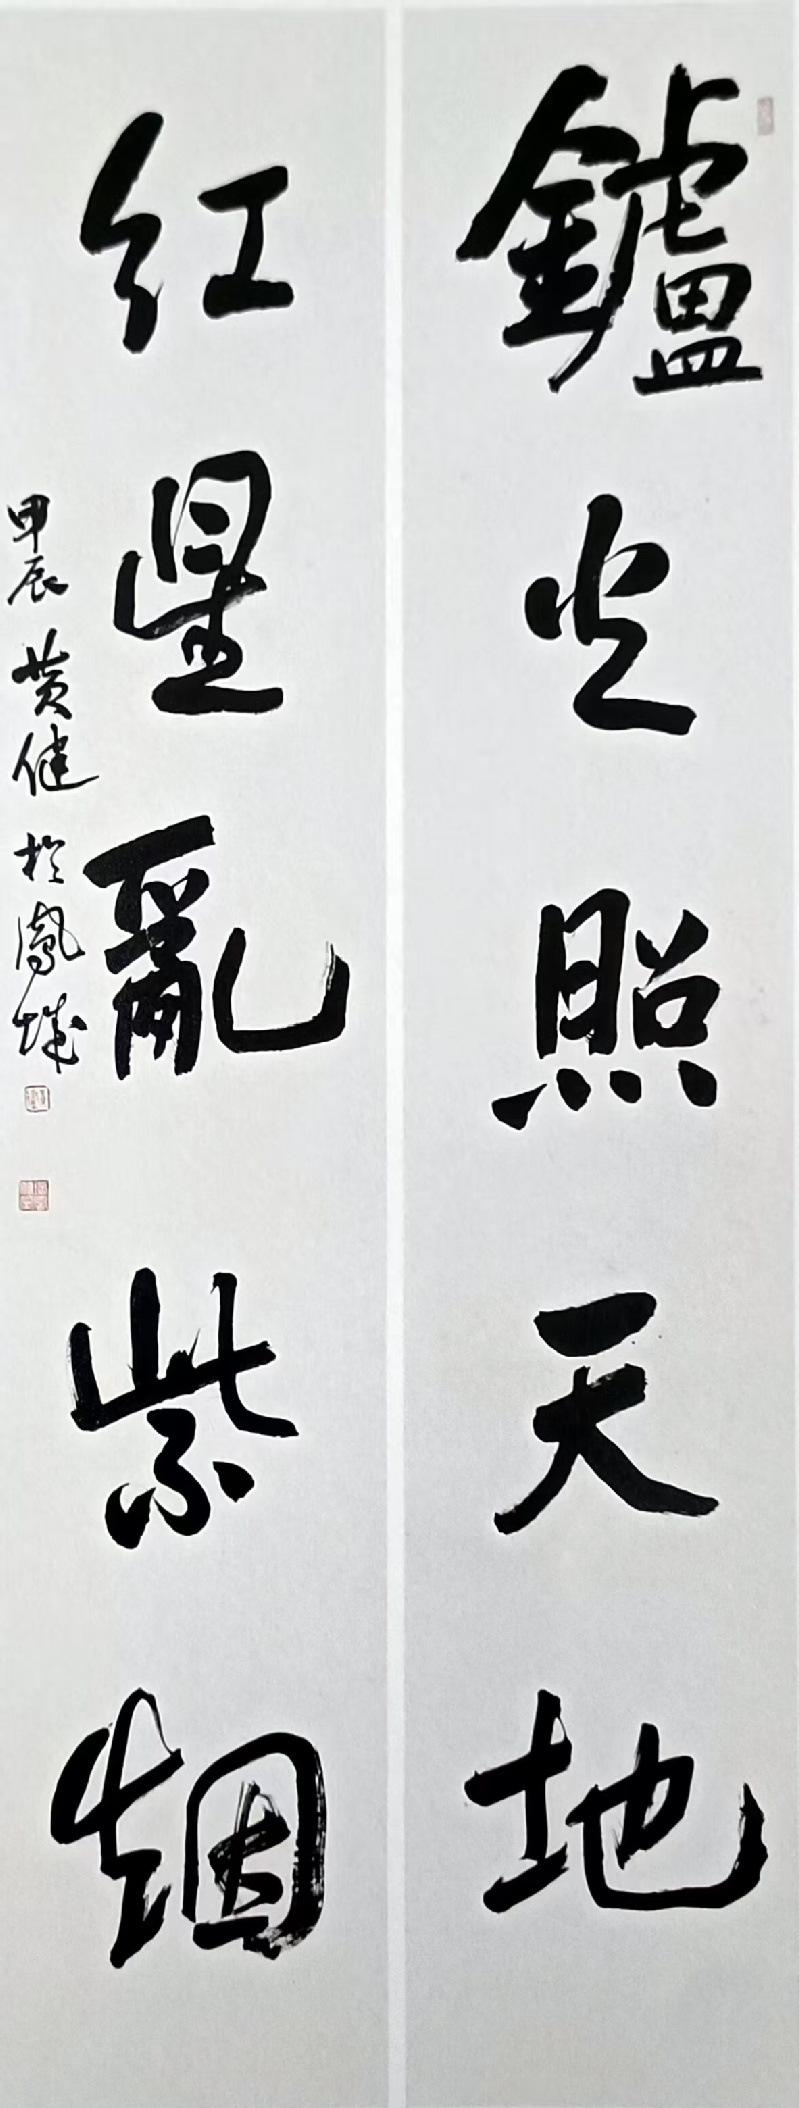 鑪火照天地
红星亂紫烟
甲辰黄健於鳳城